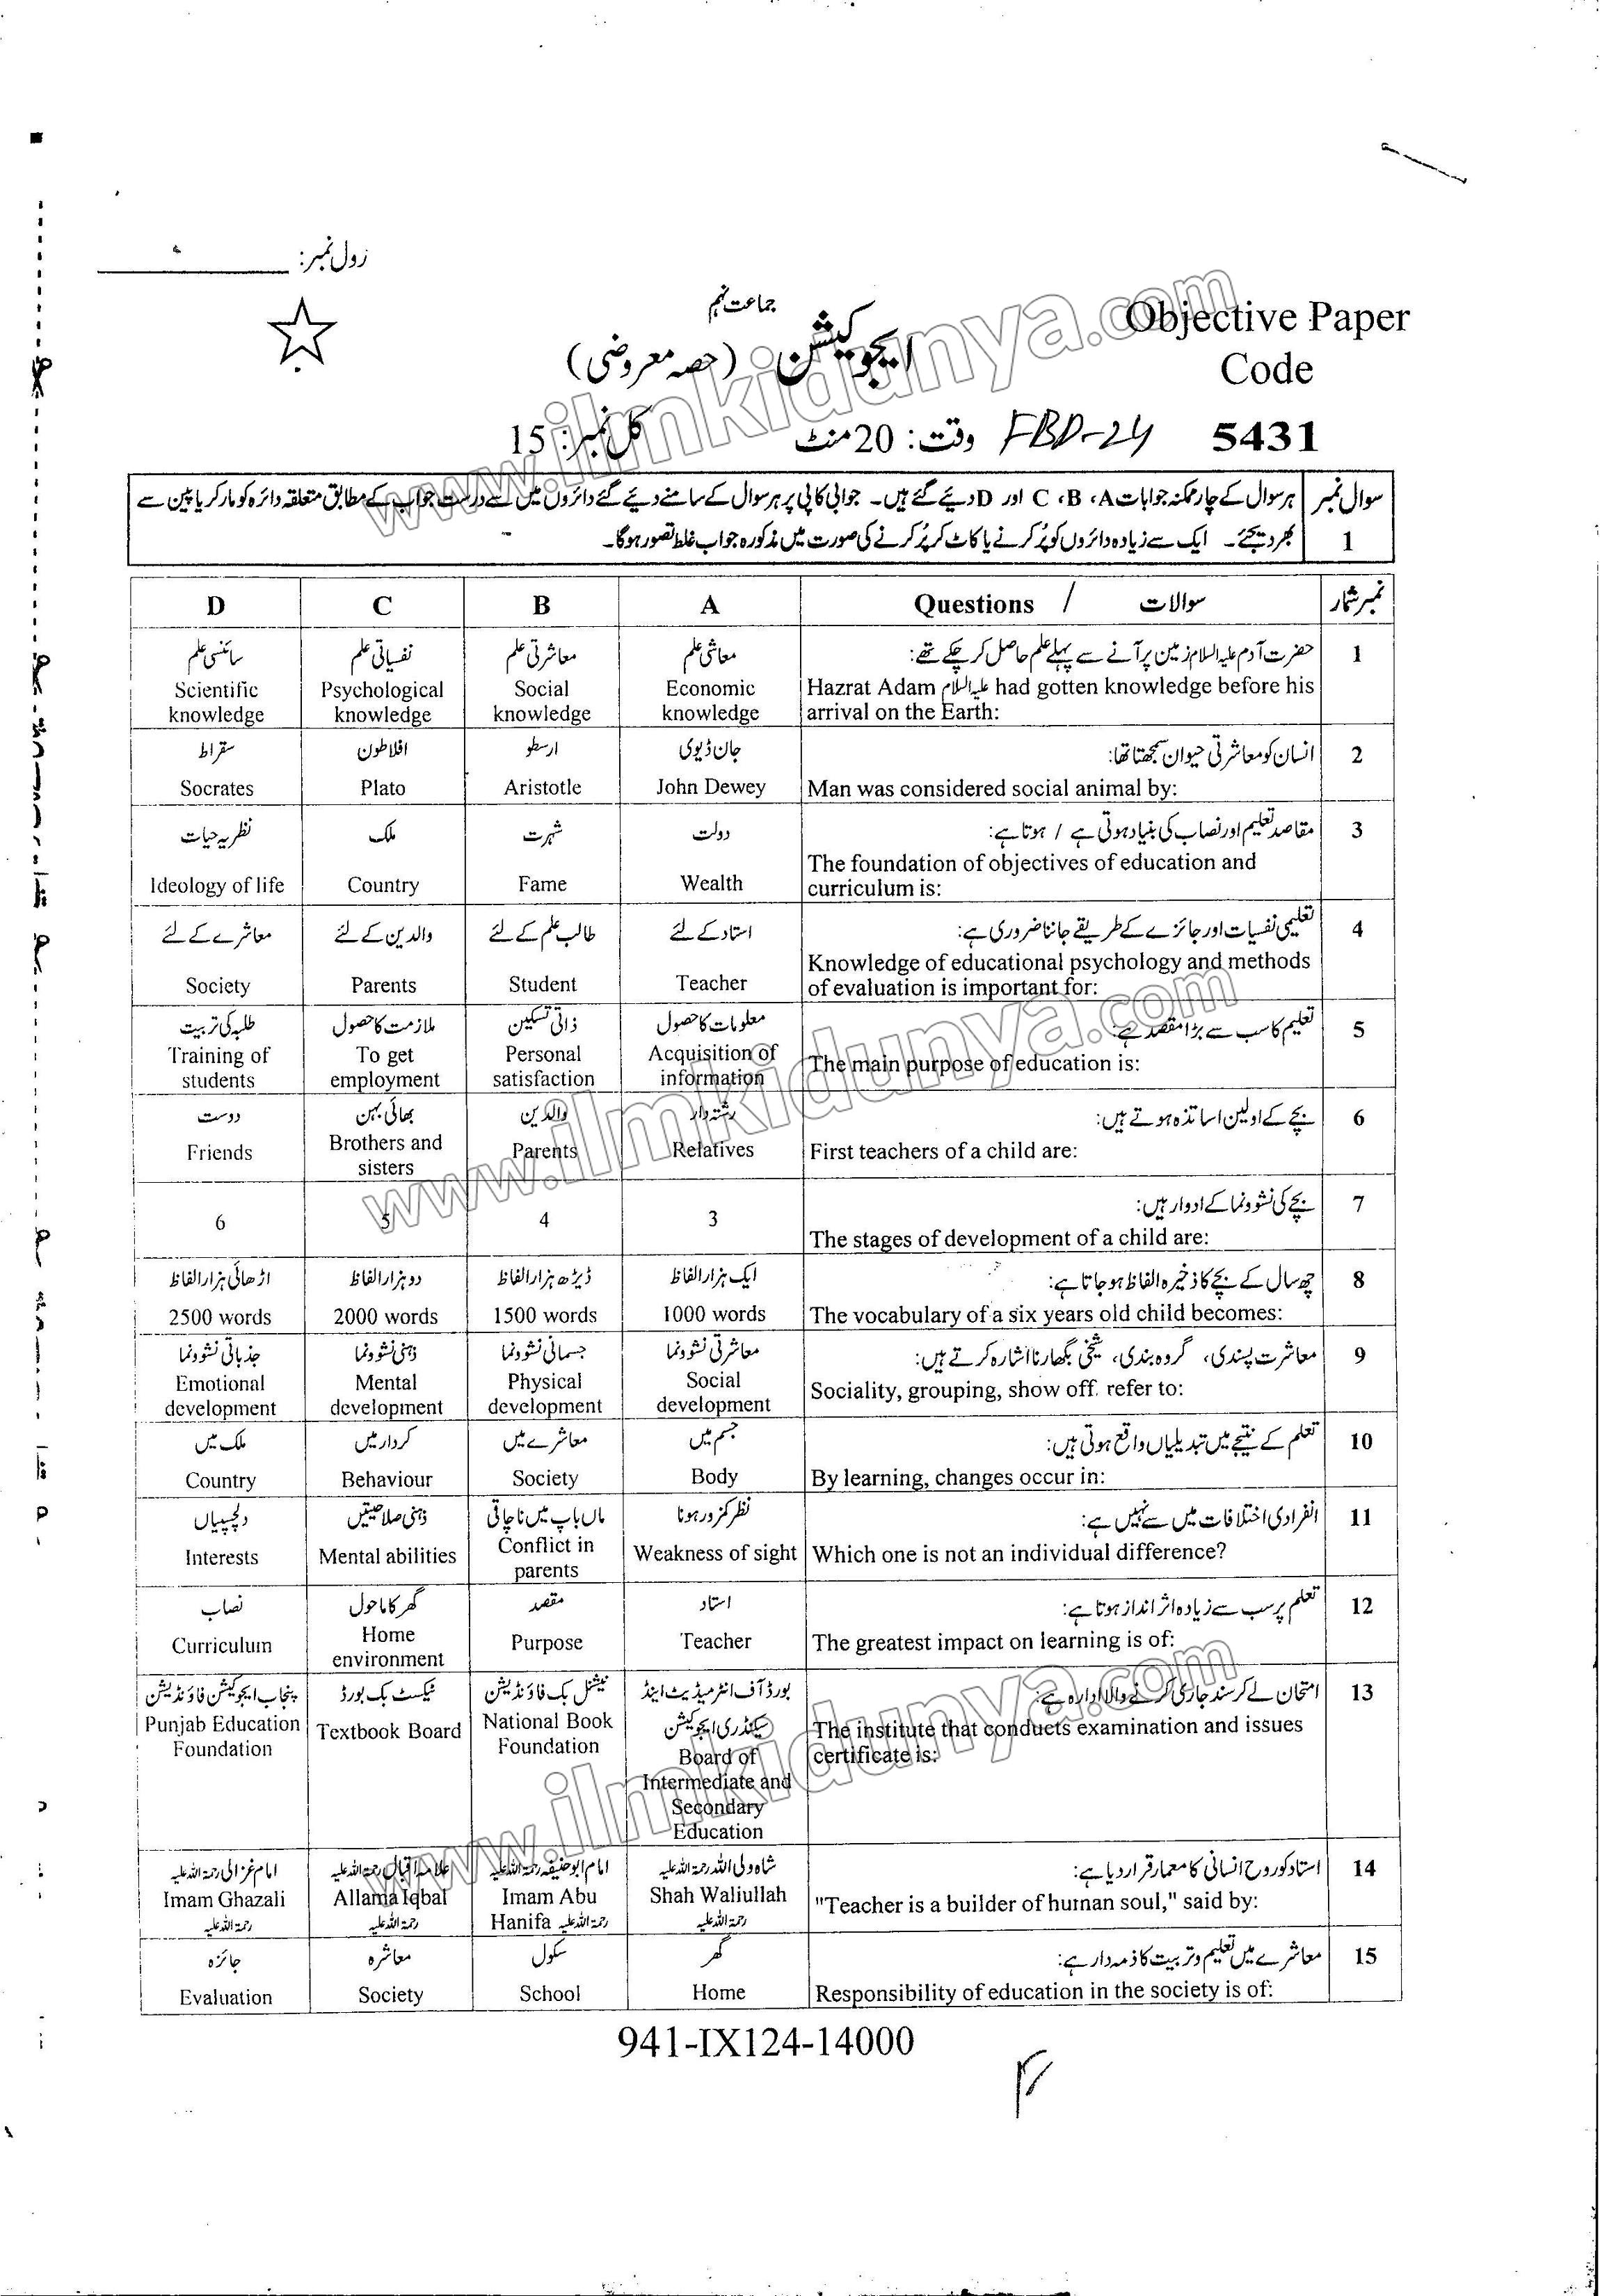 رول نمبر:
جماعت نہم
Objective Paper
ایجوکیشن (حصہ معروضی)
Code
5431
FBD-24
وقت: 20 منٹ
کل نمبر: 15
سوال نمبر 1
ہر سوال کے چار ممکنہ جوابات A، B، C اور D دیئے گئے ہیں۔ جوابی کاپی پر ہر سوال کے سامنے دیئے گئے دائروں میں سے درست جواب کے مطابق متعلقہ دائرہ کو مارکر یا پین سے
بھر دیجئے۔ ایک سے زیادہ دائروں کو پُر کرنے یا کاٹ کر پُر کرنے کی صورت میں مذکورہ جواب غلط تصور ہوگا۔
نمبر شمار
سوالات / Questions
A
B
C
D
1
حضرت آدم علیہ السلام زمین پر آنے سے پہلے علم حاصل کر چکے تھے:
Hazrat Adam علیہ السلام had gotten knowledge before his
arrival on the Earth:
معاشی علم
Economic
knowledge
معاشرتی علم
Social
knowledge
نفسیاتی علم
Psychological
knowledge
سائنسی علم
Scientific
knowledge
2
انسان کو معاشرتی حیوان سمجھتا تھا:
Man was considered social animal by:
جان ڈیوی
John Dewey
ارسطو
Aristotle
افلاطون
Plato
سقراط
Socrates
3
مقاصد تعلیم اور نصاب کی بنیاد ہوتی ہے / ہوتا ہے:
The foundation of objectives of education and
curriculum is:
دولت
Wealth
شہرت
Fame
ملک
Country
نظریہ حیات
Ideology of life
4
تعلیمی نفسیات اور جائزے کے طریقے جاننا ضروری ہے:
Knowledge of educational psychology and methods
of evaluation is important for:
استاد کے لئے
Teacher
طالب علم کے لئے
Student
والدین کے لئے
Parents
معاشرے کے لئے
Society
5
تعلیم کا سب سے بڑا مقصد ہے:
The main purpose of education is:
معلومات کا حصول
Acquisition of
information
ذاتی تسکین
Personal
satisfaction
ملازمت کا حصول
To get
employment
طلبہ کی تربیت
Training of
students
6
بچے کے اولین اساتذہ ہوتے ہیں:
First teachers of a child are:
رشتہ دار
Relatives
والدین
Parents
بھائی بہن
Brothers and
sisters
دوست
Friends
7
بچے کی نشوونما کے ادوار ہیں:
The stages of development of a child are:
3
4
5
6
8
چھ سال کے بچے کا ذخیرہ الفاظ ہو جاتا ہے:
The vocabulary of a six years old child becomes:
ایک ہزار الفاظ
1000 words
ڈیڑھ ہزار الفاظ
1500 words
دو ہزار الفاظ
2000 words
اڑھائی ہزار الفاظ
2500 words
9
معاشرت پسندی، گروہ بندی، شیخی بگھارنا اشارہ کرتے ہیں:
Sociality, grouping, show off. refer to:
معاشرتی نشوونما
Social
development
جسمانی نشوونما
Physical
development
ذہنی نشوونما
Mental
development
جذباتی نشوونما
Emotional
development
10
تعلم کے نتیجے میں تبدیلیاں واقع ہوتی ہیں:
By learning, changes occur in:
جسم میں
Body
معاشرے میں
Society
کردار میں
Behaviour
ملک میں
Country
11
انفرادی اختلافات میں سے نہیں ہے:
Which one is not an individual difference?
نظر کمزور ہونا
Weakness of sight
ماں باپ میں ناچاقی
Conflict in
parents
ذہنی صلاحیتیں
Mental abilities
دلچسپیاں
Interests
12
تعلم پر سب سے زیادہ اثر انداز ہوتا ہے:
The greatest impact on learning is of:
استاد
Teacher
مقصد
Purpose
گھر کا ماحول
Home
environment
نصاب
Curriculum
13
امتحان لے کر سند جاری کرنے والا ادارہ ہے:
The institute that conducts examination and issues
certificate is:
بورڈ آف انٹرمیڈیٹ اینڈ
سیکنڈری ایجوکیشن
Board of
Intermediate and
Secondary
Education
نیشنل بک فاؤنڈیشن
National Book
Foundation
ٹیکسٹ بک بورڈ
Textbook Board
پنجاب ایجوکیشن فاؤنڈیشن
Punjab Education
Foundation
14
استاد کو روح انسانی کا معمار قرار دیا ہے:
"Teacher is a builder of human soul," said by:
شاہ ولی اللہ رحمۃ اللہ علیہ
Shah Waliullah
رحمۃ اللہ علیہ
امام ابو حنیفہ رحمۃ اللہ علیہ
Imam Abu
Hanifa رحمۃ اللہ علیہ
علامہ اقبال رحمۃ اللہ علیہ
Allama Iqbal
رحمۃ اللہ علیہ
امام غزالی رحمۃ اللہ علیہ
Imam Ghazali
رحمۃ اللہ علیہ
15
معاشرے میں تعلیم و تربیت کا ذمہ دار ہے:
Responsibility of education in the society is of:
گھر
Home
سکول
School
معاشرہ
Society
جائزہ
Evaluation
941-IX124-14000
www.ilmkidunya.com
www.ilmkidunya.com
www.ilmkidunya.com